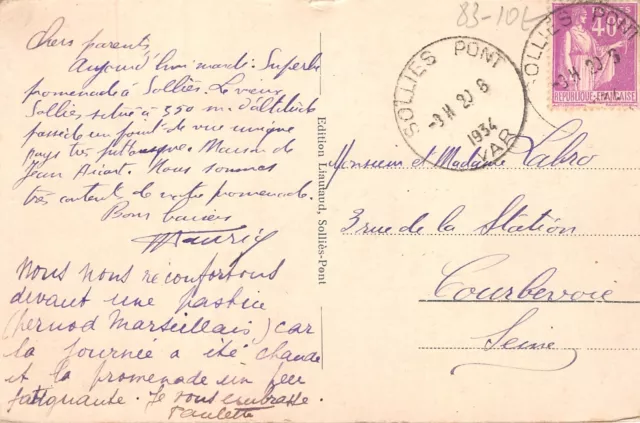 Chers parents
Aujourd'hui mardi : Superbe
promenade à Solliès. Le vieux
Solliès situé à 350 m. d'altitude
possède un point de vue unique
pays très pittoresque. Maison de
Jean Aicart. Nous sommes
très content de notre promenade.
Bons baisers
Maurice
Nous nous réconfortons
devant une pastice
(pernod Marseillais) car
la journée a été chaude
et la promenade un peu
fatiguante. Je vous embrasse.
Paulette
Edition Liautaud, Solliès-Pont
83-10
SOLLIES PONT
1934
VAR
SOLLIES PONT
POSTES
40c
REPUBLIQUE FRANÇAISE
Monsieur et Madame Labro
3 rue de la Station
Courbevoie
Seine